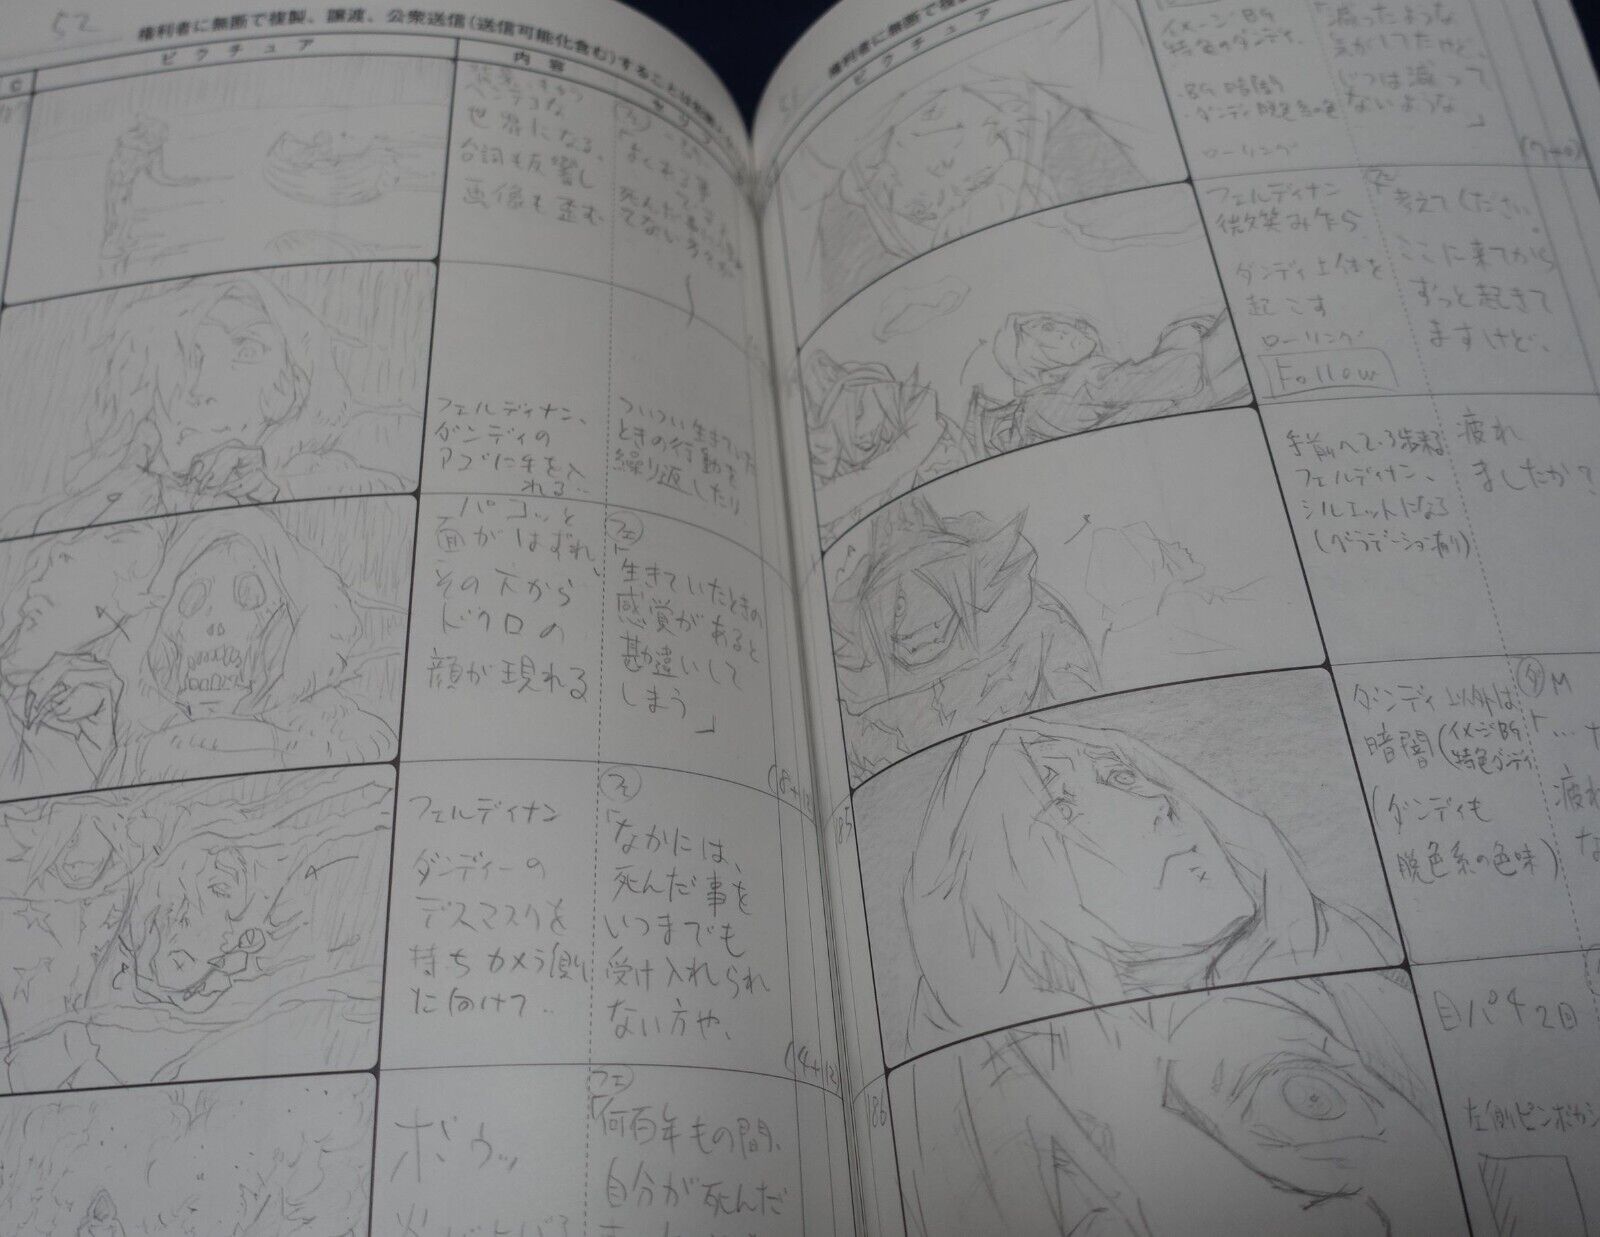 52
権利者に無断で複製、譲渡、公衆送信(送信可能化含む)することは
C
ピクチュア
内容
セリフ
世界になる、
台詞も反響し
画像も歪む
よくある事
フェルディナン、
ダンディの
アゴに手を入
れる‥
ついつい生きていた
ときの行動を
繰り返したり
パコッと
面がはずれ、
その下から
ドクロの
顔が現れる
フェ
「生きていたときの
感覚があると
勘違いして
しまう」
(8+12
フェルディナン
ダンディーの
デスマスクを
持ちカメラ側
に向けて‥
フェ
「なかには、
死んだ事を
いつまでも
受け入れられ
ない方や、
(4+12)
ボウッ
フェ
「何百年もの間、
自分が死んだ
権利者に無断で複
ピクチュア
イメージBG
特色のダンディ
・BG 暗闇
・ダンディ脱色系の色
ローリング
「減ったような
気がしてたけど、
じつは減って
ないような」
(7+0)
フェルディナン
微笑み乍ら
ダンディ上体を
起こす
ローリング
Follow
フェ
考えてください。
ここに来てから
ずっと起きて
ますけど、
手前へていろ歩来る
フェルディナン、
シルエットになる
(グラデーション有り)
疲れ
ましたか?
185
ダンディ以外は
暗闇(イメージBG
特色ダンディ
(ダンディも
脱色系の色味)
ダ M
「…
疲れ
な
186
目パチ2回
左側ピンボカシ